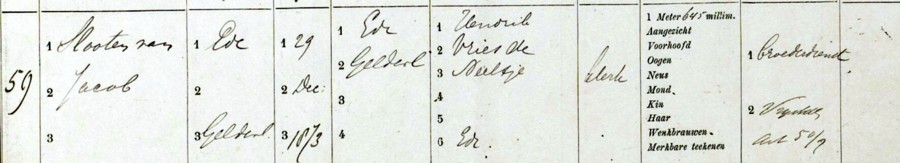 59
1 Slooten van
2 Jacob
3
1 Ede
2
3 Gelderl.
1 29
2 Dec:
3 1873
1 Ede
2 Gelderl
3
4
1 Hendrik
2 Vries de
3 Neeltje
4
5
6 Ede
klerk
1 Meter 645 millim.
Aangezicht
Voorhoofd
Oogen
Neus
Mond.
Kin
Haar
Wenkbrauwen.
Merkbare teekenen
1 broederdienst
2
Art 50/7